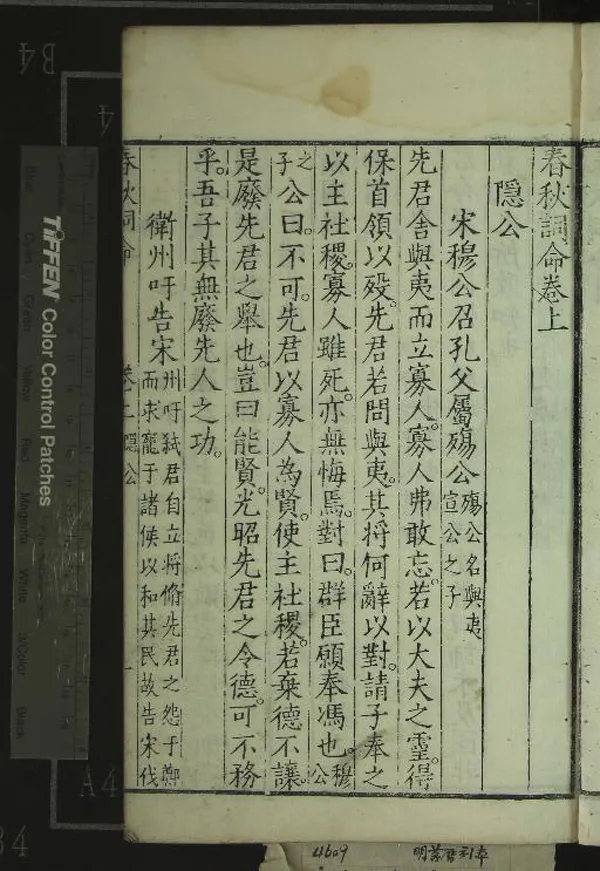 春秋詞命卷上
隱公
宋穆公召孔父屬殤公殤公名與夷宣公之子
先君舍與夷而立寡人。寡人弗敢忘。若以大夫之靈。得
保首領以殁。先君若問與夷。其將何辭以對。請子奉之
以主社稷。寡人雖死。亦無悔焉。對曰。群臣願奉馮也。穆公
之子公曰。不可。先君以寡人為賢。使主社稷。若棄德不讓。
是廢先君之舉也。豈曰能賢。光昭先君之令德。可不務
乎。吾子其無廢先人之功。
衛州吁告宋州吁弑君自立將脩先君之怨于鄭而求寵于諸侯以和其民故告宋伐
春秋詞命 卷上 隱公 一
TIFFEN Color Control Patches
B4
A4
4609